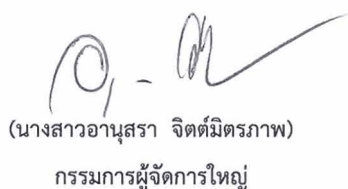 (นางสาวอานุสรา จิตต์มิตรภาพ)
กรรมการผู้จัดการใหญ่